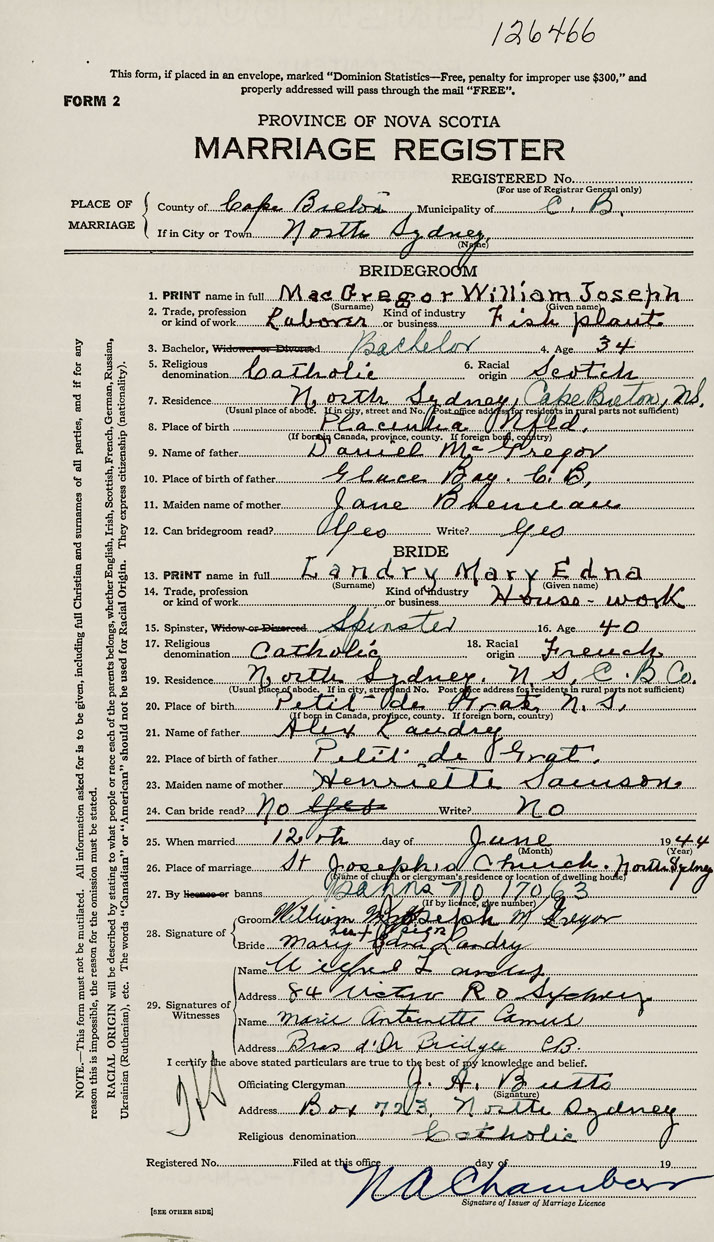 126466
This form, if placed in an envelope, marked "Dominion Statistics—Free, penalty for improper use $300," and
properly addressed will pass through the mail "FREE".
FORM 2
PROVINCE OF NOVA SCOTIA
MARRIAGE REGISTER
REGISTERED No.
(For use of Registrar General only)
PLACE OF MARRIAGE
County of Cape Breton, Municipality of C. B.
If in City or Town North Sydney,
(Name)
BRIDEGROOM
1. PRINT name in full MacGregor William Joseph
(Surname) (Given name)
2. Trade, profession or kind of work Laborer Kind of industry or business Fish plant
3. Bachelor, Widower or Divorced Bachelor 4. Age 34
5. Religious denomination Catholic 6. Racial origin Scotch
7. Residence North Sydney, Cape Breton, NS.
(Usual place of abode. If in city, street and No. Post office address for residents in rural parts not sufficient)
8. Place of birth Placentia Nfld.
(If born in Canada, province, county. If foreign born, country)
9. Name of father Daniel Mc Gregor
10. Place of birth of father Glace Bay. C. B,
11. Maiden name of mother Jane
12. Can bridegroom read? Yes Write? Yes
BRIDE
13. PRINT name in full Landry Mary Edna
(Surname) (Given name)
14. Trade, profession or kind of work Kind of industry or business House-work
15. Spinster, Widow or Divorced Spinster 16. Age 40
17. Religious denomination Catholic 18. Racial origin French
19. Residence North Sydney. N S, C. B Co.
(Usual place of abode. If in city, street and No. Post office address for residents in rural parts not sufficient)
20. Place of birth Petit de Grat N. S.
(If born in Canada, province, county. If foreign born, country)
21. Name of father Alex Landry
22. Place of birth of father Petit de Grat.
23. Maiden name of mother Henriette Samson
24. Can bride read? No Yes Write? No
25. When married 12th day of June 1944
(Month) (Year)
26. Place of marriage St Joseph's Church. North Sydney
(Name of church or clergyman's residence or location of dwelling house)
27. By licence or banns Banns No 17063
(If by licence, give number)
28. Signature of
Groom William Joseph Mc Gregor
Bride Mary Edna Landry
29. Signatures of Witnesses
Name Wilfred
Address 84 Sydney
Name Marie Antoinette Camus
Address Bras d'Or Bridge CB.
I certify the above stated particulars are true to the best of my knowledge and belief.
Officiating Clergyman J. A. Butts
(Signature)
Address Box 723, North Sydney
Religious denomination Catholic
Registered No. Filed at this office day of 19
N A Chambers
Signature of Issuer of Marriage Licence
[SEE OTHER SIDE]
NOTE.—This form must not be mutilated. All information asked for is to be given, including full Christian and surnames of all parties, and if for any
reason this is impossible, the reason for the omission must be stated.
RACIAL ORIGIN will be described by stating to what people or race each of the parents belongs, whether English, Irish, Scottish, French, German, Russian,
Ukrainian (Ruthenian), etc. The words "Canadian" or "American" should not be used for Racial Origin. They express citizenship (nationality).